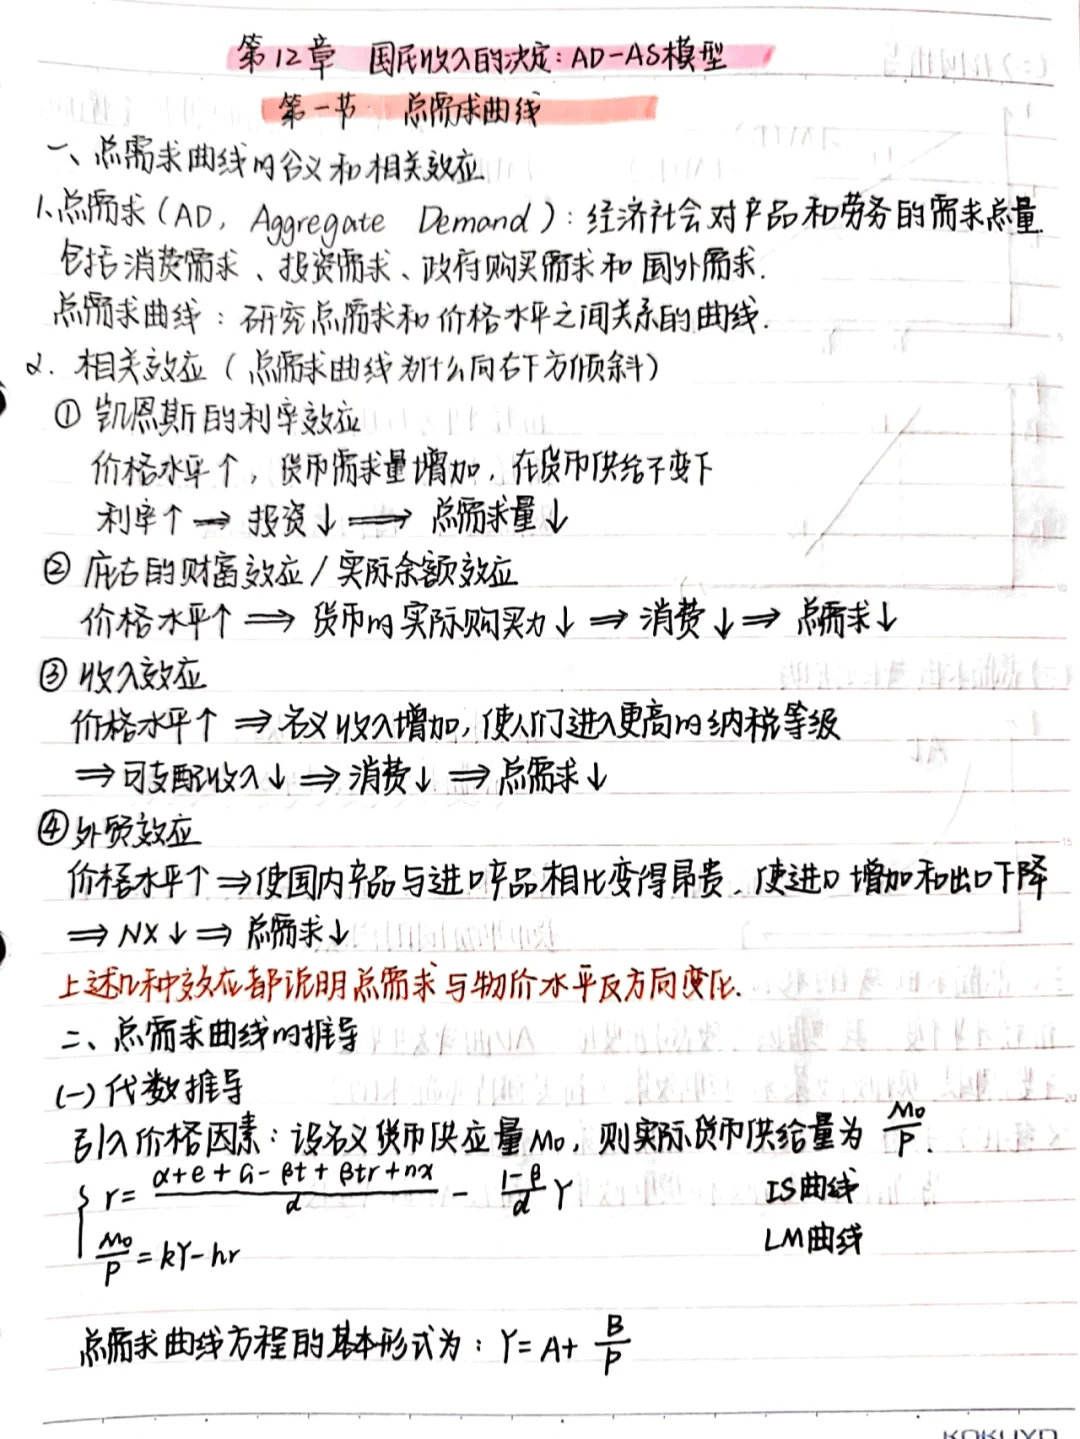 第12章 国民收入的决定：AD-AS模型
第一节 总需求曲线
一、总需求曲线的含义和相关效应
1、总需求（AD，Aggregate Demand）：经济社会对产品和劳务的需求总量.
包括消费需求、投资需求、政府购买需求和国外需求.
总需求曲线：研究总需求和价格水平之间关系的曲线.
2. 相关效应（总需求曲线为什么向右下方倾斜）
① 凯恩斯的利率效应
价格水平↑，货币需求量增加，在货币供给不变下
利率↑→投资↓⇒总需求量↓
② 庇古的财富效应/实际余额效应
价格水平↑⇒货币的实际购买力↓⇒消费↓⇒总需求↓
③ 收入效应
价格水平↑⇒名义收入增加，使人们进入更高的纳税等级
⇒可支配收入↓⇒消费↓⇒总需求↓
④ 外贸效应
价格水平↑⇒使国内产品与进口产品相比变得昂贵，使进口增加和出口下降
⇒NX↓⇒总需求↓
上述几种效应都说明总需求与物价水平反方向变化.
二、总需求曲线的推导
(一) 代数推导
引入价格因素：设名义货币供应量M₀，则实际货币供给量为 M₀/P.
{ r= (α+e+G-βt+βtr+nx)/d - (1-β)/d Y IS曲线
M₀/P = kY-hr LM曲线
总需求曲线方程的基本形式为：Y= A+ B/P
KOKUYO